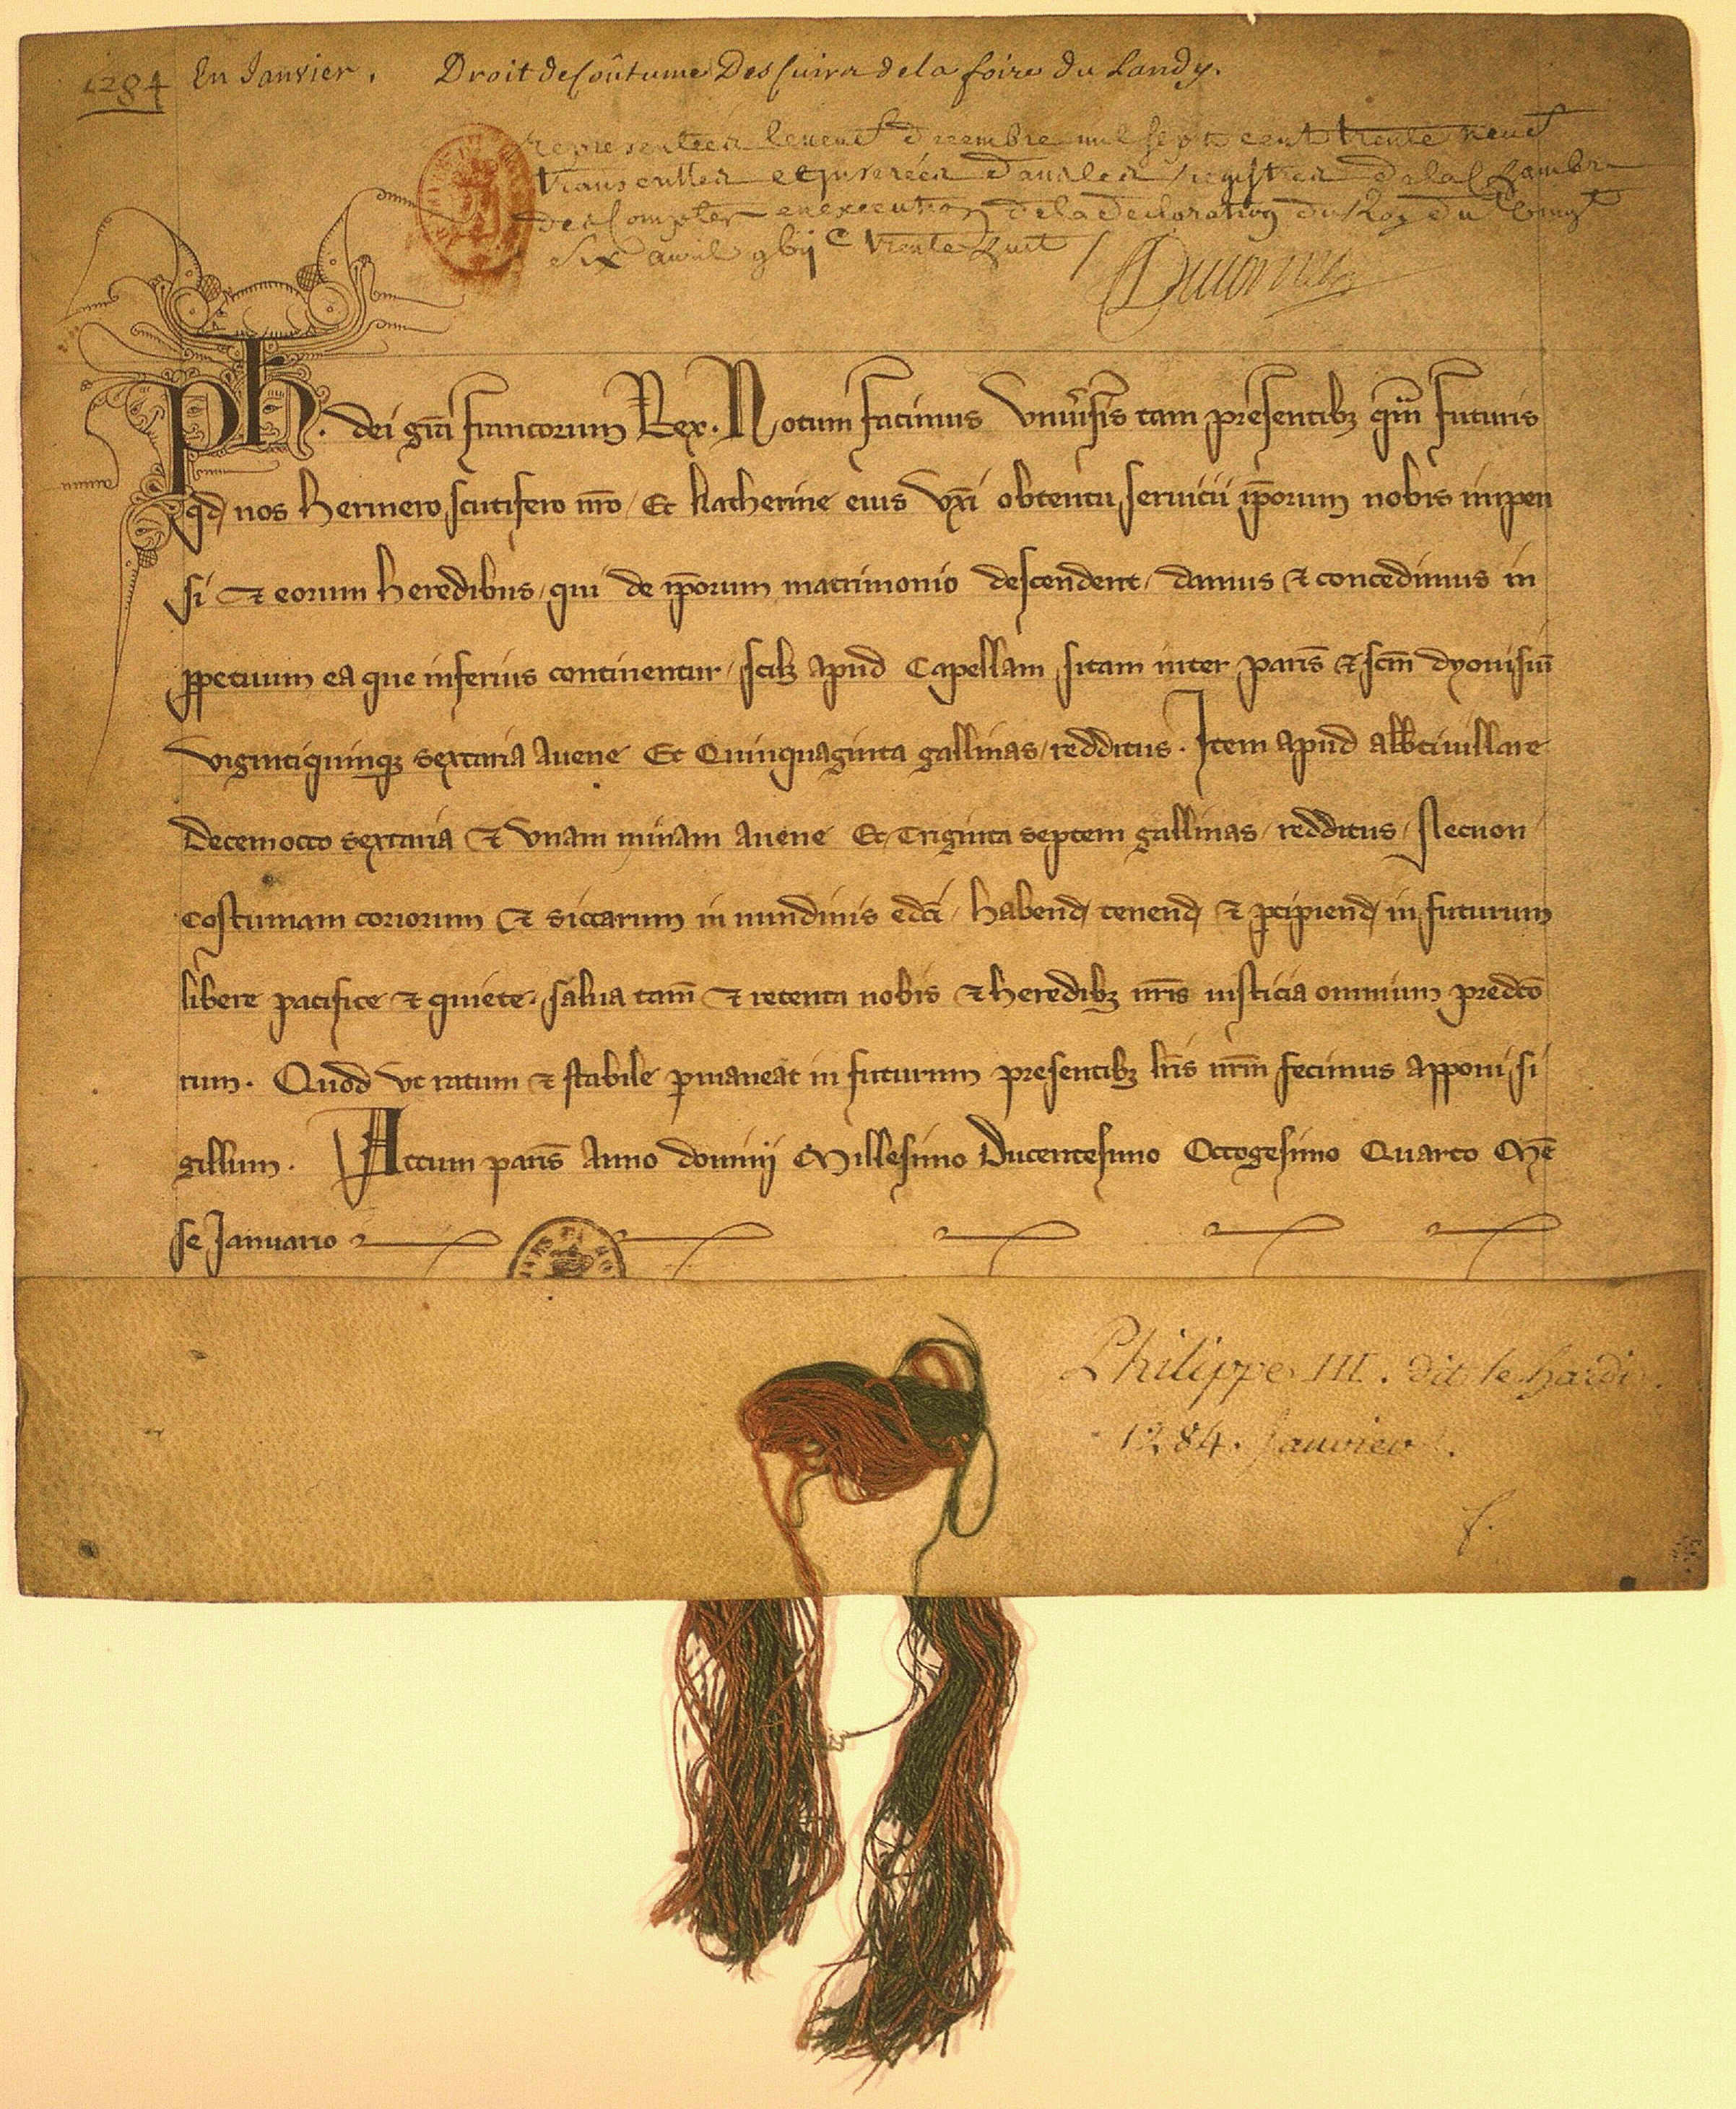 1284 En Janvier. Droit de Coûtume Des Cuirs de la foire du Landy.
representées le neuf decembre mil sept cent trente neuf
transcrittes et jnserées dans les registres de la Chambre
des Comptes en execution de la declaration du Roy du vingt
six avril gbijc trente huit /
Ph. dei gr̃a francorum Rex. Notum facimus Vniũsis tam presentibꝫ qm̃ futuris
qd nos hermero scutifero nr̃o / Et katherine eius vxi obtentu seruicii ip̃orum nobis impen
si ⁊ eorum heredibus / qui de ip̃orum matrimonio descendent / damus ⁊ concedimus in
ꝑpetuum ea que inferius continentur / scilꝫ apud Capellam sitam inter paris̃ ⁊ scm̃ dyonisiũ
vigintiquinqꝫ sextaria auene Et Quinquaginta gallinas / redditus. Item apud alb̃tiuillare
Decemocto sextaria ⁊ vnam minam auene Et Triginta septem gallinas / redditus / Necnon
costumam coriorum ⁊ siccarum in nundinis edcĩ / habend tenend ⁊ ꝑcipiend in futurum
libere pacifice ⁊ quiete / salua tam̃ ⁊ retenta nobis ⁊ heredibꝫ nr̃is iusticia omnium predc̃o
rum. Quod vt ratum ⁊ stabile ꝑmaneat in futurum presentibꝫ lr̃is nr̃m fecimus apponi si
gillum. Actum paris̃ Anno dominj Millesimo Ducentesimo Octogesimo Quarto Mẽ
se Januario
Philippe III. dit le hardi.
1284. Janvier.